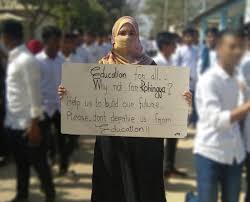 Education for all...
Why not for Rohingya?
help us to build our future.
Please, don't deprive us from
Education!!